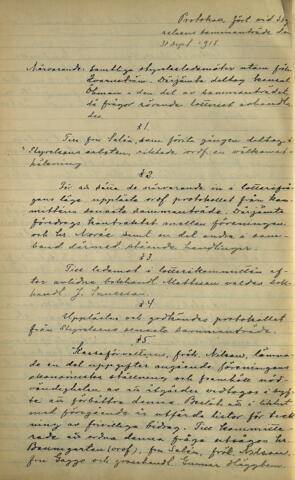 Protokoll fört vid Sty-
relsens sammanträde den
21 sept. 1918.
Närvarande: samtliga styrelseledamöter utom fröken
Kvarnström. Därjämte deltog
Öhman i den del av sammanträdet,
då frågor rörande lotteriet avhandla-
des.
§ 1.
Till fru Salén, som första gången deltog i
Styrelsens arbeten, riktade ordf. en välkomst-
hälsning.
§ 2
För att sätta de närvarande in i lotterifrå-
gans läge upplästes ordf. protokollet från kom-
mitténs senaste sammanträde. Därjämte
föredrogs kontraktet mellan föreningen
och hr Norée samt en del andra i sam-
band därmed stående handlingar.
§ 3
Till ledamot i lotterikommittén ef-
ter avlidne bokhandl. Mattsson valdes bok-
handl. J.
§ 4
Upplästes och godkändes protokollet
från Styrelsens senaste sammanträde.
§ 5
Kassaförvaltaren, frök. Nilsson, lämna-
de en del uppgifter angående föreningens
ekonomiska ställning och framhöll nöd-
vändigheten av att åtgärder vidtogos i syf-
te att förbättra densamma. Beslöts att i likhet
med föregående år utfärda listor för teck-
ning av frivilliga bidrag. Till kommitte-
rade att ordna denna fråga utsågos hr
Baumgarten (ordf.), fru Salén, frök. Nilsson,
fru Gaggo och grosshandl. Gunnar Häggbom.